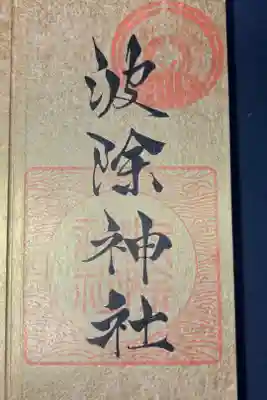 波除神社